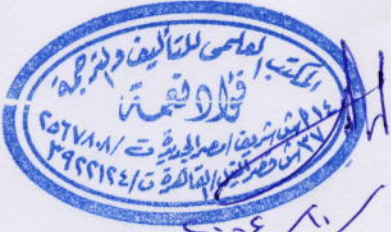 المكتب العلمى للتأليف والترجمة
فؤاد نعمة
ش شريف / مصر الجديدة ت / ٢٥٦٧٨٠٨
٣٧ ش قصر النيل / القاهرة ت / ٣٩٢٢١٢٤